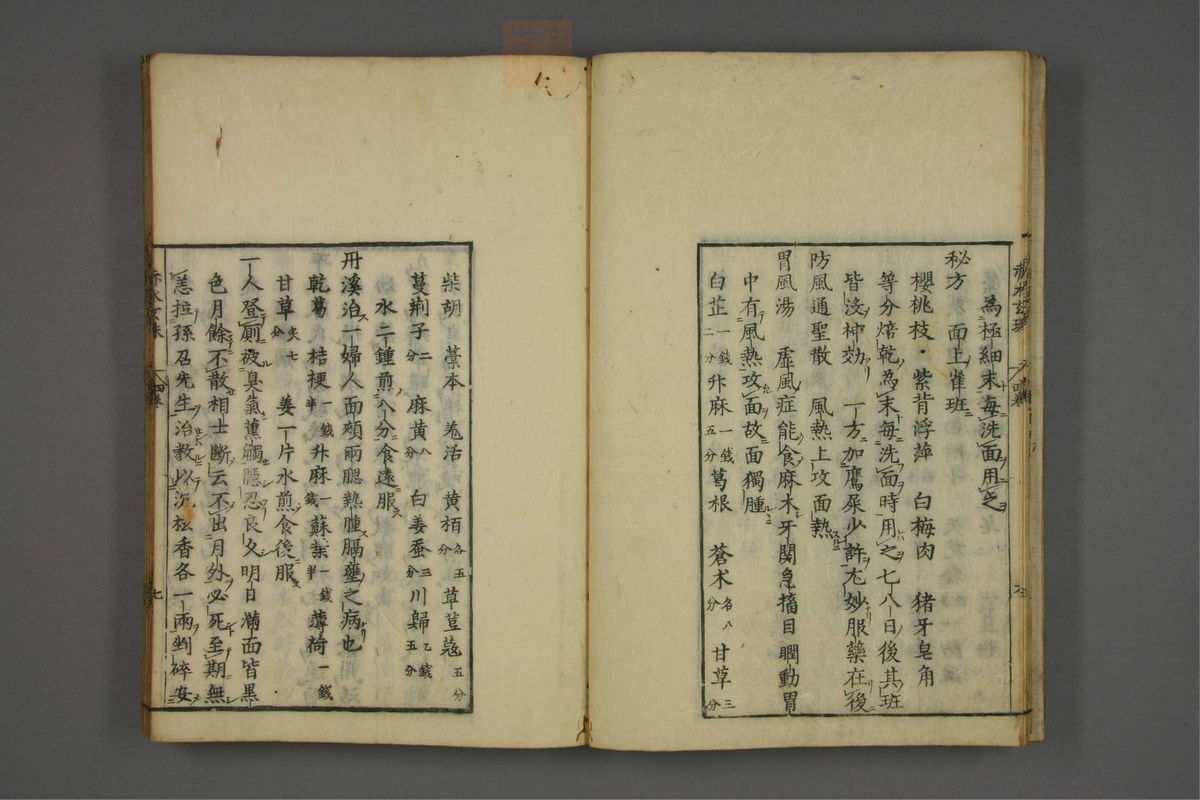 為極細末每洗面用之
秘方 面上雀班
櫻桃枝・紫背浮萍 白梅肉 猪牙皂角
等分焙乾為末每洗面時用之七八日後其班
皆没神効 一方加鷹屎少許尤妙服藥在後
防風通聖散 風熱上攻面熱
胃風湯 虚風症能食麻木牙関急搐目瞤動胃
中有風熱攻面故面獨腫
白芷一錢二分 升麻一錢五分 葛根 蒼术各八分 甘草三分
柴胡 藁本 羗活 黄栢各五分 草荳蔲五分
蔓荆子二分 麻黄八分 白姜蚕三分 川歸乙錢五分
水二鍾煎八分食遠服
丹溪治一婦人面頰兩腮熱腫膈壅之病也
乾葛 桔梗一錢半 升麻一錢 蘇葉一錢半 薄荷一錢
甘草炙七分 姜一片水煎食後服
一人登厠被臭氣薫觸隠忍良久明日滿面皆黒
色月餘不散相士断云不出月外必死至期無
恙拉孫召先生治教以沉松香各一兩剉碎安